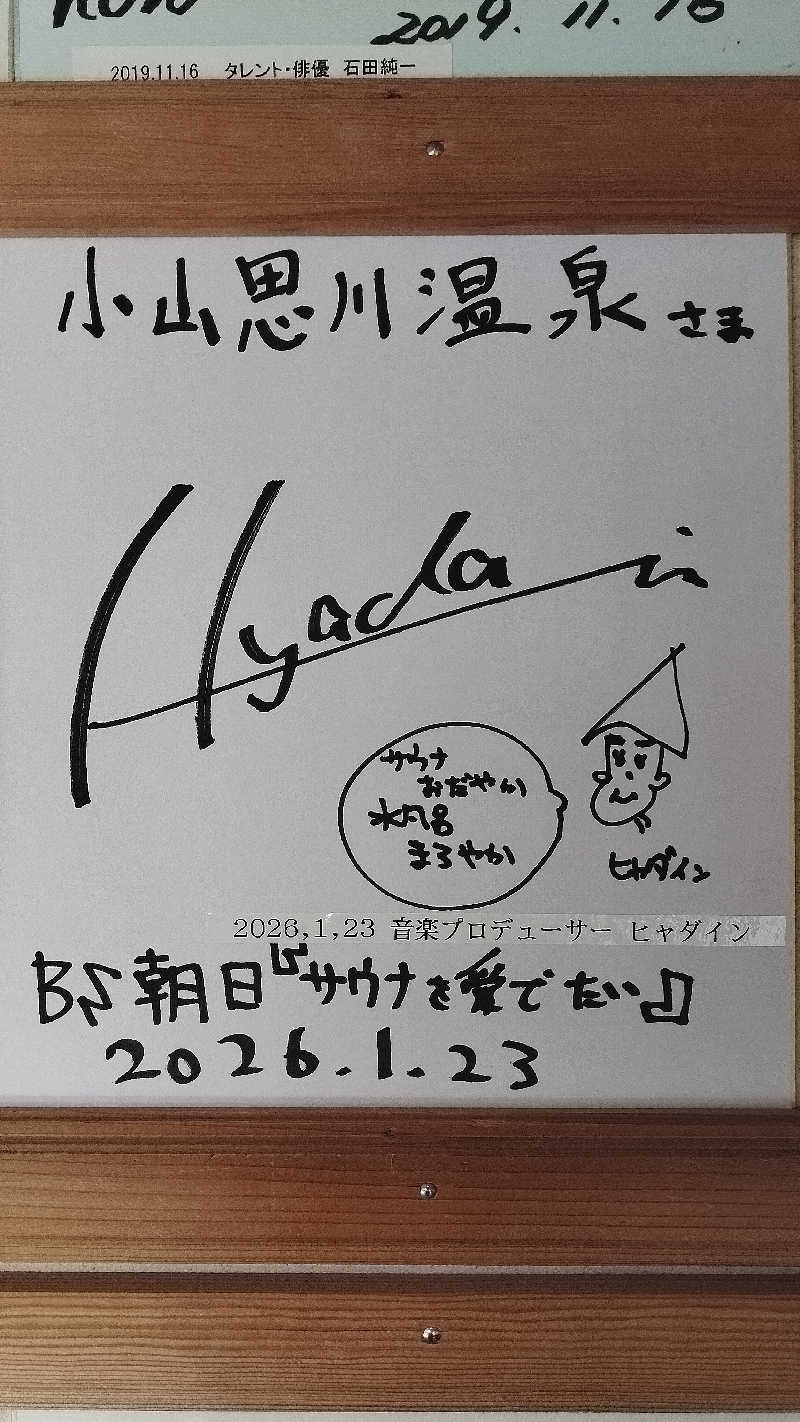 2019.11.16
2019.11.16 タレント・俳優 石田純一
小山思川温泉さま
Hyadain
サウナ
おだやか
水風呂
まろやか
ヒャダイン
2026,1,23 音楽プロデューサー ヒャダイン
BS朝日『サウナを愛でたい』
2026.1.23